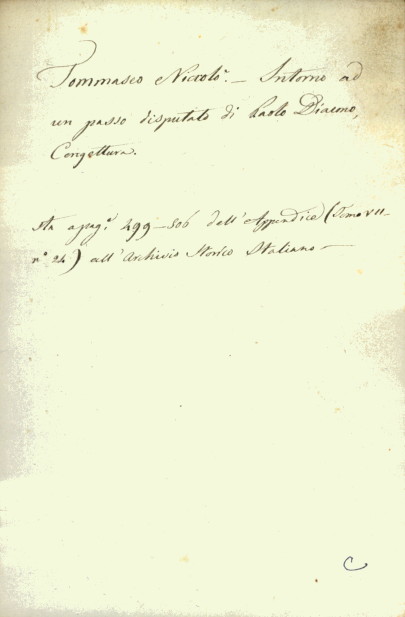 Tommaseo Niccolò. — Intorno ad
un passo disputato di Paolo Diacono,
Congettura.
Sta a pag.ᵉ 499–506 dell'Appendice (Tomo VII–
n.º 24) all'Archivio Storico Italiano —
C